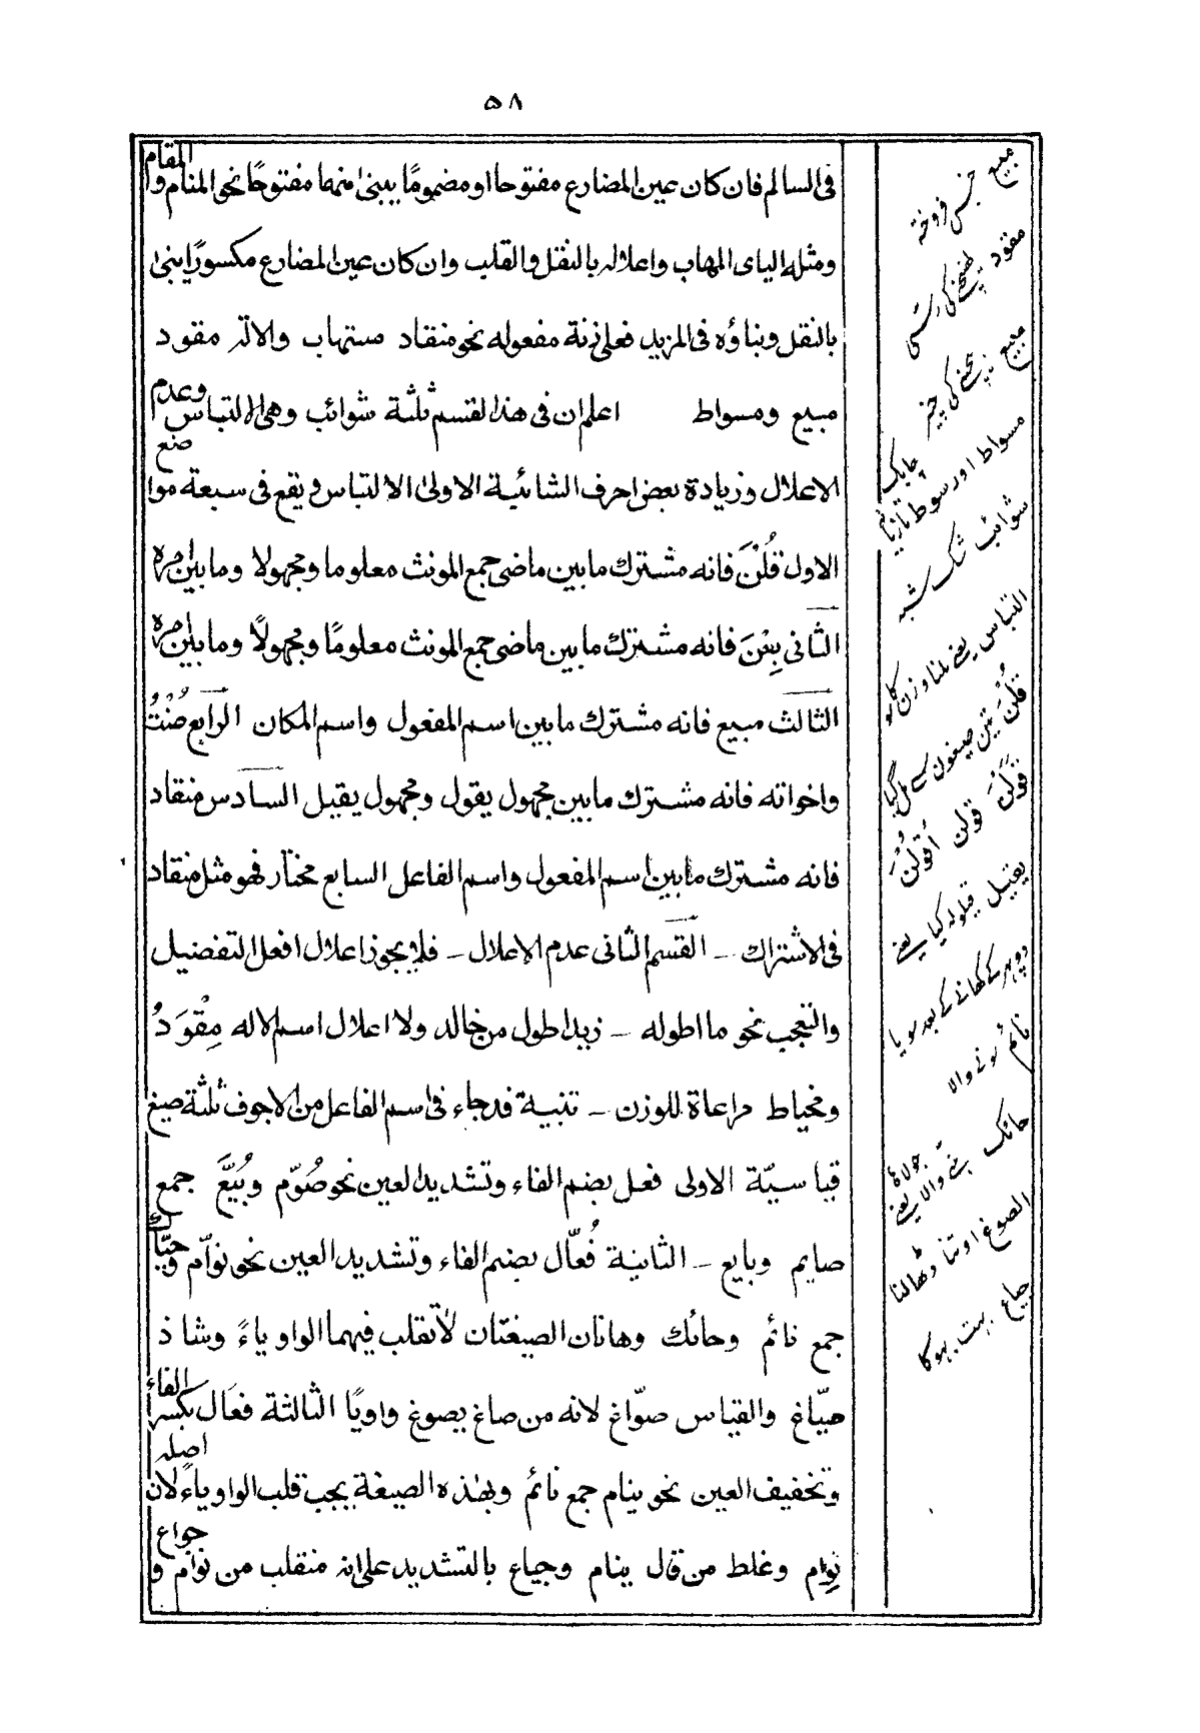 ٥٨
فى السالم فان كان عين المضارع مفتوحا او مضموما يبنى منهما مفتوحًا نحو المنام والمقام
ومثله اليائى المهاب واعلاله بالنقل والقلب وان كان عين المضارع مكسورًا يبنى
بالنقل وبناؤه فى المزيد فعلى زنة مفعوله نحو منقاد مستهاب والالة مقود
مبيع ومسواط اعلم ان فى هذا القسم ثلثة شوائب وهى الالتباس وعدم
الاعلال وزيادة بعض احرف الشائبة الاولى الالتباس ويقع فى سبعة مواضع
الاول قُلْنَ فانه مشترك مابين ماضى جمع المونث معلوما ومجهولا ومابين امره
الثانى بِعْنَ فانه مشترك مابين ماضى جمع المونث معلومًا ومجهولًا ومابين امره
الثالث مبيع فانه مشترك مابين اسم المفعول واسم المكان الرابع صُنْتُ
واخواته فانه مشترك مابين مجهول يقول ومجهول يقيل السادس منقاد
فانه مشترك مابين اسم المفعول واسم الفاعل السابع مختار فهو مثل منقاد
فى الاشتراك ـ القسم الثانى عدم الاعلال ـ فلا يجوز اعلال افعل التفضيل
والتعجب نحو ما اطوله ـ زيد اطول من خالد ولا اعلال اسم الاله مِقْوَدُ
ومخياط مراعاة للوزن ـ تنبية قد جاء فى اسم الفاعل من الاجوف ثلثة صيغ
قياسيّة الاولى فعل بضم الفاء وتشديد العين نحو صُوّم وبُيَّعَ جمع
صايم وبايع ـ الثانية فُعّال بضم الفاء وتشديد العين نحو نوّام وحيّاك
جمع نائم وحائك وهاتان الصيغتان لا تقلب فيهما الواو ياءً وشاذ
صيّاغ والقياس صوّاغ لانه من صاغ يصوغ واويًا الثالثة فعال بكسر الفاء
وتخفيف العين نحو ينام جمع نائم وبهذه الصيغة يجب قلب الواو ياءً لان اصله
نِوام وغلط من قال ينام وجياع بالتشديد على انه منقلب من نوام و جواع
مبيع جنس فروخته
مقود
مبيع بيچنے كى چيز
مسواط اور سوط تازيانہ چابک
شوائب شك شبه
التباس يعنے ملنا وزن كا
قُلْنَ تين صيغوں سے مل گيا
قَوَلْنَ قولن اُقْوُلْنَ
يقيل قيلوله كيا يعنے
دوپہر كے كھانے كے بعد سويا
نائم سونے والا
حائک بننے والا يعنے جولاہ
الصوغ اوتنا ڈھالنا
جياع بہت بہوكا